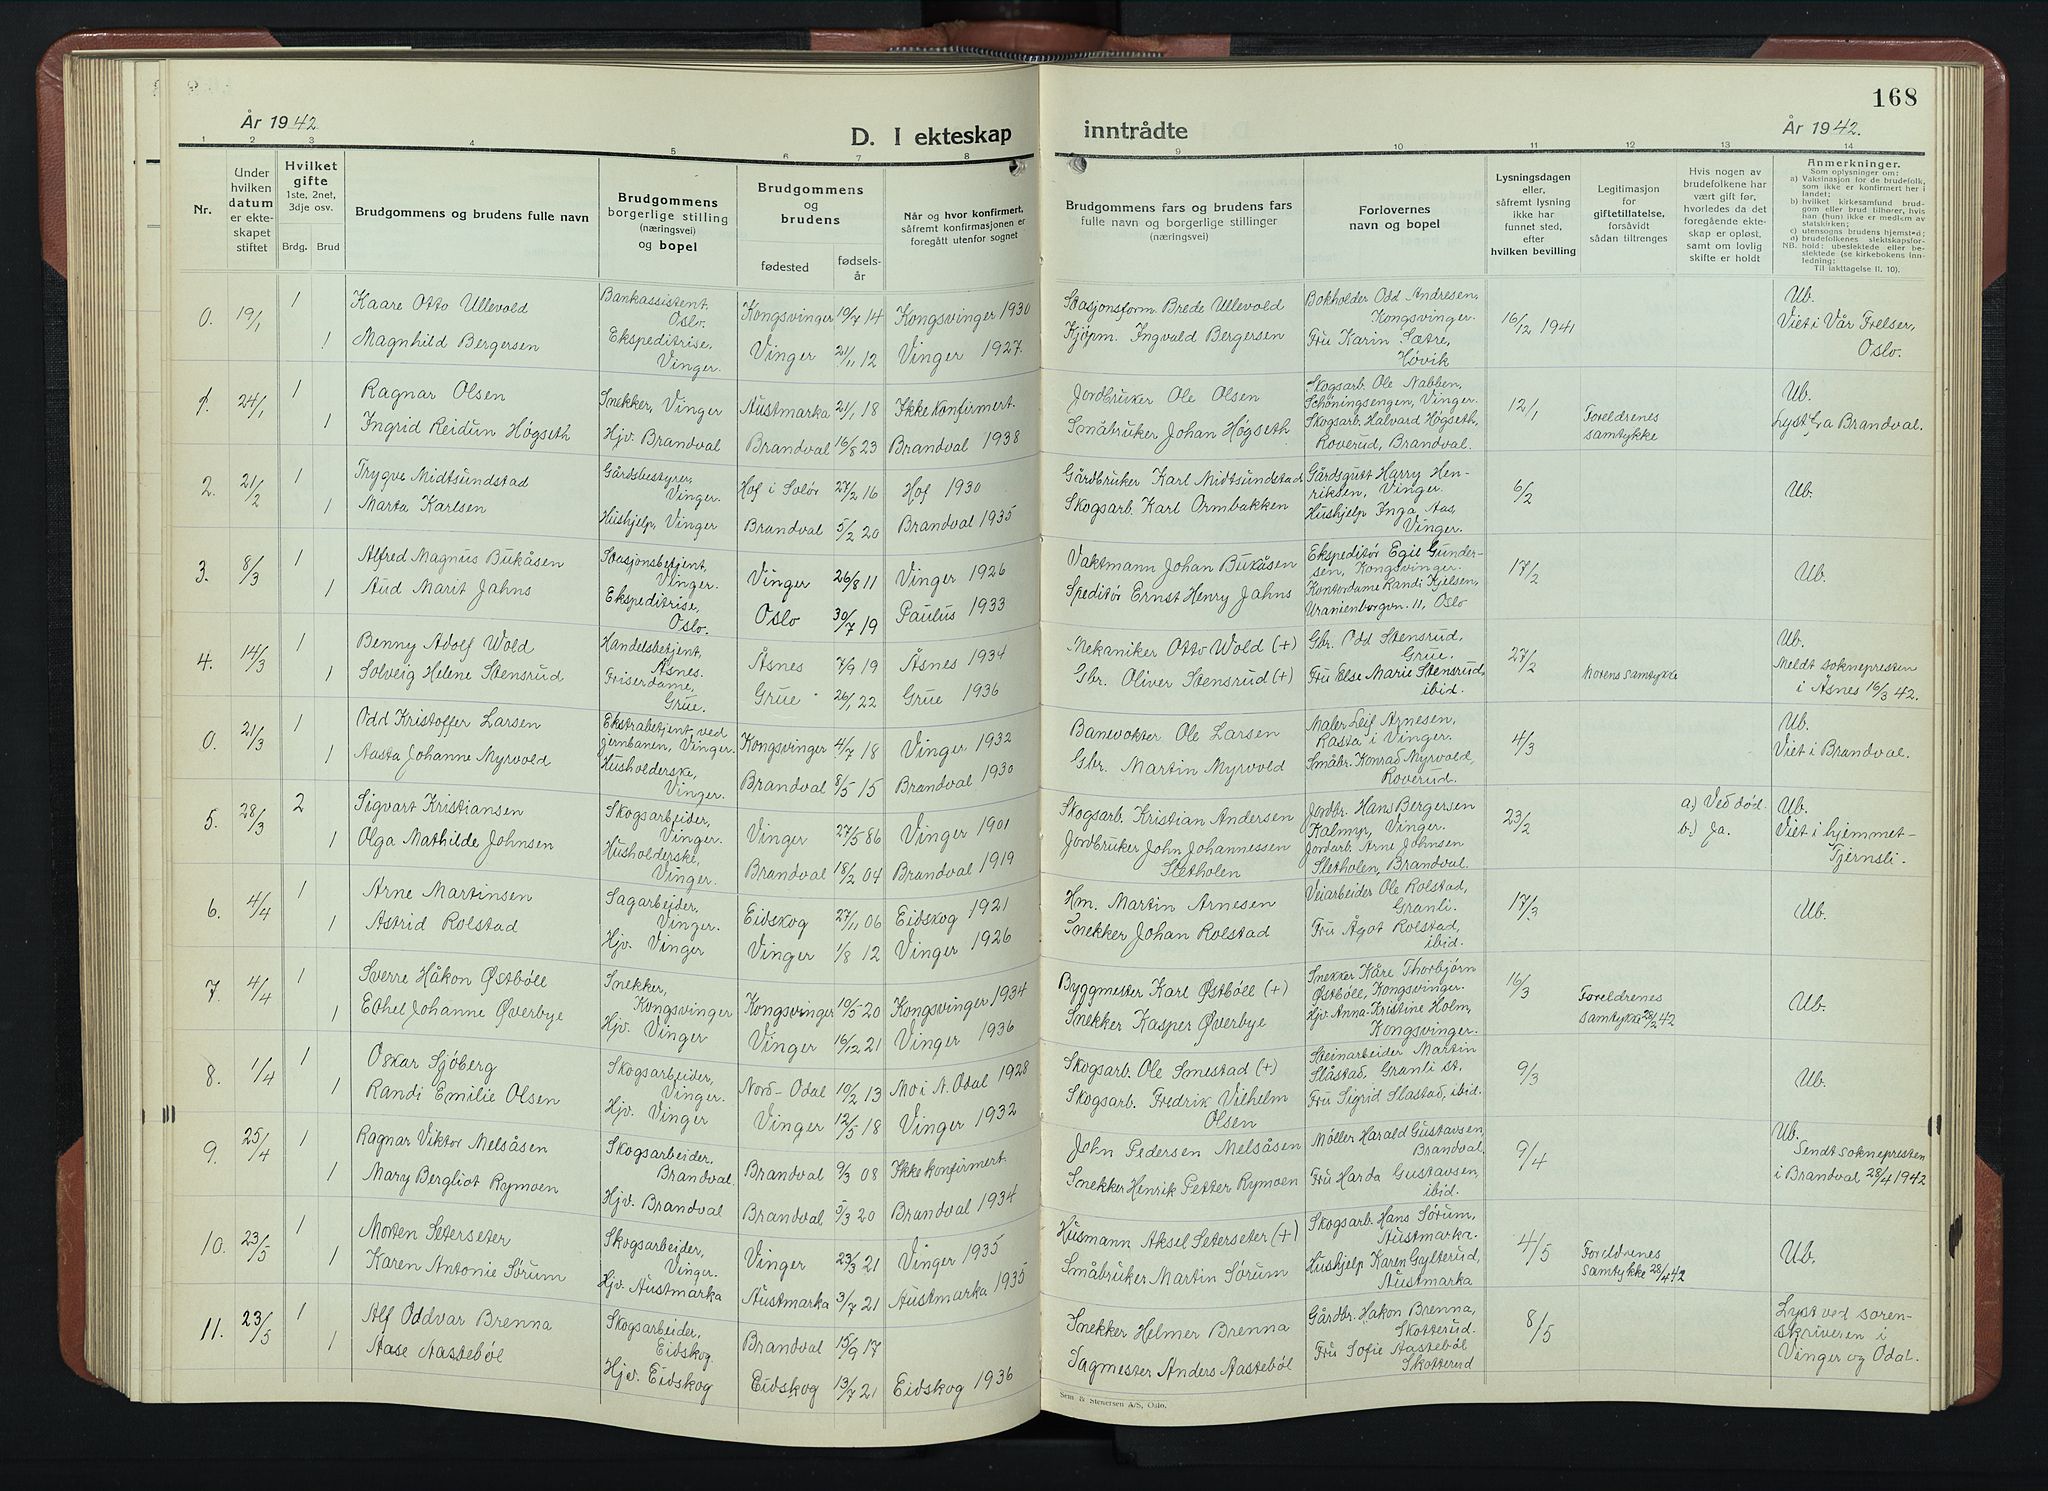 168
År 1942
D. I ekteskap
inntrådte
År 1942.
1 2 3 4 5 6 7 8 9 10 11 12 13 14
Nr.
Under hvilken datum er ekteskapet stiftet
Hvilket gifte
1ste, 2net, 3dje osv.
Brdg. Brud
Brudgommens og brudens fulle navn
Brudgommens borgerlige stilling (næringsvei) og bopel
Brudgommens og brudens
fødested
fødselsår
Når og hvor konfirmert, såfremt konfirmasjonen er foregått utenfor sognet
Brudgommens fars og brudens fars fulle navn og borgerlige stillinger (næringsvei)
Forlovernes navn og bopel
Lysningsdagen eller, såfremt lysning ikke har funnet sted, efter hvilken bevilling
Legitimasjon for giftetillatelse, forsåvidt sådan tiltrenges
Hvis nogen av brudefolkene har vært gift før, hvorledes da det foregående ekteskap er opløst, samt om lovlig skifte er holdt
Anmerkninger.
Som oplysninger om:
a) Vaksinasjon for de brudefolk, som ikke er konfirmert her i landet;
b) hvilket kirkesamfund brudgom eller brud tilhører, hvis han (hun) ikke er medlem av statskirken;
c) utensogns brudens hjemsted;
d) brudefolkenes slektskapsforhold: ubeslektede eller beslektede (se kirkebokens innledning:
NB.
Til iakttagelse II. 10).
0. 19/1 1 Kaare Otto Ullevold Bankassistent, Oslo. Kongsvinger 19/7 14 Kongsvinger 1930 Stasjonsform. Brede Ullevold Bokholder Odd Andresen, Kongsvinger. 16/12 1941 Ub.
1 Magnhild Bergersen Ekspeditrise, Vinger. Vinger 21/11 12 Vinger 1927. Kjøpm. Ingvald Bergersen Fru Karin Sætre, Høvik Viet i Vår Frelser, Oslo.
1. 24/1 1 Ragnar Olsen Snekker, Vinger Austmarka 21/1 18 Ikke konfirmert. Jordbruker Ole Olsen Skogsarb. Ole Nabben, Schöningsengen, Vinger. 12/1 Foreldrenes samtykke Ub.
1 Ingrid Reidun Høgseth Hjv. Brandval Brandval 16/8 23 Brandval 1938 Småbruker Johan Høgseth Skogsarb. Halvard Høgseth, Roverud, Brandval. Lyst fra Brandval.
2. 21/2 1 Trygve Midtsundstad Gårdsbestyrer, Vinger. Hof i Solør 27/2 16 Hof 1930 Gårdbruker Karl Midtsundstad Gårdsgutt Harry Henriksen, Vinger. 6/2 Ub.
1 Marta Karlsen Hushjelp, Vinger Brandval 5/2 20 Brandval 1935 Skogsarb. Karl Ormbakken Hushjelp Inga Aas, Vinger.
3. 8/3 1 Alfred Magnus Bukåsen Stasjonsbetjent, Vinger. Vinger 26/8 11 Vinger 1926 Vaktmann Johan Bukåsen Ekspeditør Egil Gundersen, Kongsvinger. 17/2 Ub.
1 Aud Marit Jahns Ekspeditrise, Oslo. Oslo 30/7 19 Paulus 1933 Speditør Ernst Henry Jahns Kontordame Randi Kjelsen, Uranienborgvn. 11, Oslo
4. 14/3 1 Benny Adolf Wold Handelsbetjent, Åsnes. Åsnes 7/9 19 Åsnes 1934 Mekaniker Otto Wold (+) Gbr. Odd Stensrud, Grue. 27/2 Morens samtykke Ub.
1 Solveig Helene Stensrud Friserdame, Grue. Grue 26/1 22 Grue 1936 Gbr. Oliver Stensrud (+) Fru Else Marie Stensrud, ibid. Meldt soknepresten i Åsnes 16/3 42.
0. 21/3 1 Odd Kristoffer Larsen Ekstrabetjent ved jernbanen, Vinger. Kongsvinger 4/7 18 Vinger 1932 Banevokter Ole Larsen Maler Leif Arnesen, Rasta i Vinger. 4/3 Ub.
1 Aasta Johanne Myrvold Husholderske, Vinger. Brandval 8/5 15 Brandval 1930 Gbr. Martin Myrvold Småbr. Konrad Myrvold, Roverud. Viet i Brandval.
5. 28/3 2 Sigvart Kristiansen Skogsarbeider, Vinger. Vinger 27/5 86 Vinger 1901 Skogsarb. Kristian Andersen Jordbr. Hans Bergersen Kalmyr, Vinger. 23/2 a.) Ved død. b.) Ja. Ub.
1 Olga Mathilde Johnsen Husholderske, Vinger. Brandval 18/2 04 Brandval 1919 Jordbruker John Johannessen Sletholen Jordarb. Arne Johnsen Sletholen, Brandval. Viet i hjemmet - Tjernsli.
6. 4/4 1 Arne Martinsen Sagarbeider, Vinger. Eidskog 27/11 06 Eidskog 1921 Hm. Martin Arnesen Veiarbeider Ole Rolstad, Granli. 17/3 Ub.
1 Astrid Rolstad Hjv. Vinger Vinger 1/8 12 Vinger 1926 Snekker Johan Rolstad Fru Ågot Rolstad, ibid.
7. 4/4 1 Sverre Håkon Østbøll Snekker, Kongsvinger Kongsvinger 10/5 20 Kongsvinger 1934 Byggmester Karl Østbøll (+) Snekker Kåre Thorbjørn Østbøll, Kongsvinger. 16/3 Foreldrenes samtykke 28/2 42 Ub.
1 Ethel Johanne Øverbye Hjv. Vinger Vinger 16/12 21 Vinger 1936 Snekker Kasper Øverbye Hjv. Anna-Kristine Holm, Kongsvinger.
8. 1/4 1 Oskar Sjøberg Skogsarbeider, Vinger. Nord-Odal 10/2 13 Mo i N. Odal 1928 Skogsarb. Ole Smestad (+) Steinarbeider Martin Slåstad, Granli st. 9/3 Ub.
1 Randi Emilie Olsen Hjv. Vinger Vinger 12/5 18 Vinger 1932 Skogsarb. Fredrik Vilhelm Olsen Fru Sigrid Slåstad, ibid.
9. 25/4 1 Ragnar Viktor Melsåsen Skogsarbeider, Brandval. Brandval 9/3 08 Ikke konfirmert. John Pedersen Melsåsen Møller Harald Gustavsen, Brandval. 9/4 Ub.
1 Mary Bergliot Rymoen Hjv. Brandval Brandval 5/3 20 Brandval 1934 Snekker Henrik Petter Rymoen Fru Harda Gustavsen, ibid. Sendt soknepresten i Brandval 28/4 1942
10. 23/5 1 Morten Seterseter Skogsarbeider, Vinger. Vinger 23/3 21 Vinger 1935 Husmann Aksel Seterseter (+) Skogsarb. Hans Sørum, Austmarka. 4/5 Foreldrenes samtykke 28/4 42 Ub.
1 Karen Antonie Sørum Hjv. Austmarka Austmarka 3/7 21 Austmarka 1935 Småbruker Martin Sørum Hushjelp Karen Gylterud, Austmarka
11. 23/5 1 Alf Oddvar Brenna Skogsarbeider, Eidskog. Brandval 15/9 17 Snekker Helmer Brenna Gårdbr. Håkon Brenna, Skotterud. 8/5 Lyst ved sorenskriveren i Vinger og Odal.
1 Aase Aastebøl Hjv. Eidskog Eidskog 13/7 21 Eidskog 1936 Sagmester Anders Aastebøl Fru Sofie Aastebøl Skotterud
Sem & Stenersen A/S, Oslo.